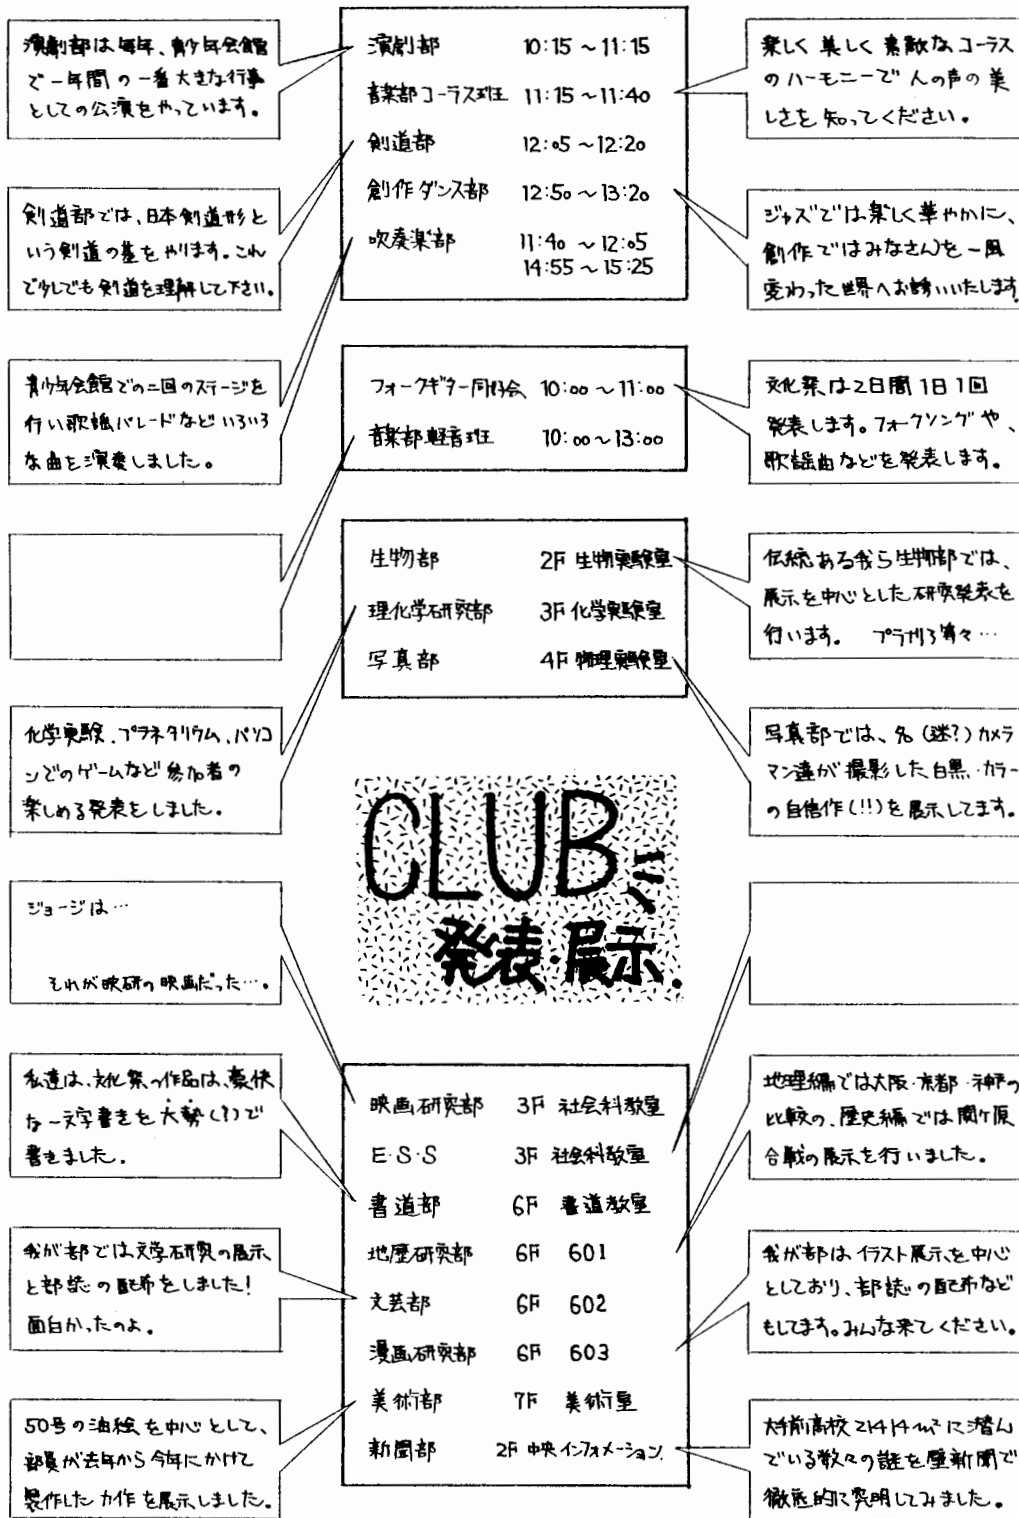 演劇部は毎年、青少年会館
で一年間の一番大きな行事
としての公演をやっています。
剣道部では、日本剣道形と
いう剣道の基をやります。これ
で少しでも剣道を理解して下さい。
青少年会館での二回のステージを
行い歌謡パレードなどいろいろ
な曲を演奏しました。
化学実験、プラネタリウム、パソコ
ンでのゲームなど参加者の
楽しめる発表をしました。
ジョージは…
それが映研の映画だった…。
私達は、文化祭の作品は、豪快
な一文字書きを大勢(?)で
書きました。
我が部では文学研究の展示
と部誌の配布をしました!
面白かったのよ。
50号の油絵を中心として、
部員が去年から今年にかけて
製作した力作を展示しました。
演劇部 10:15～11:15
音楽部コーラス班 11:15～11:40
剣道部 12:05～12:20
創作ダンス部 12:50～13:20
吹奏楽部 11:40～12:05
14:55～15:25
フォークギター同好会 10:00～11:00
音楽部軽音班 10:00～13:00
生物部 2F 生物実験室
理化学研究部 3F 化学実験室
写真部 4F 物理実験室
CLUB
発表・展示.
映画研究部 3F 社会科教室
E・S・S 3F 社会科教室
書道部 6F 書道教室
地歴研究部 6F 601
文芸部 6F 602
漫画研究部 6F 603
美術部 7F 美術室
新聞部 2F 中央インフォメーション.
楽しく美しく素敵なコーラス
のハーモニーで人の声の美
しさを知ってください。
ジャズでは楽しく華やかに、
創作ではみなさんを一風
変わった世界へお誘いいたします
文化祭は2日間1日1回
発表します。フォークソングや、
歌謡曲などを発表します。
伝統ある我ら生物部では、
展示を中心とした研究発表を
行います。 等々…
写真部では、名(迷?)カメラ
マン達が撮影した白黒、カラー
の自信作(!!)を展示してます。
地理編では大阪・京都・神戸の
比較の、歴史編では関ヶ原
合戦の展示を行いました。
我が部はイラスト展示を中心
としており、部誌の配布など
もしてます。みんな来てください。
大手前高校21414m²に潜ん
でいる数々の謎を壁新聞で
徹底的に究明してみました。